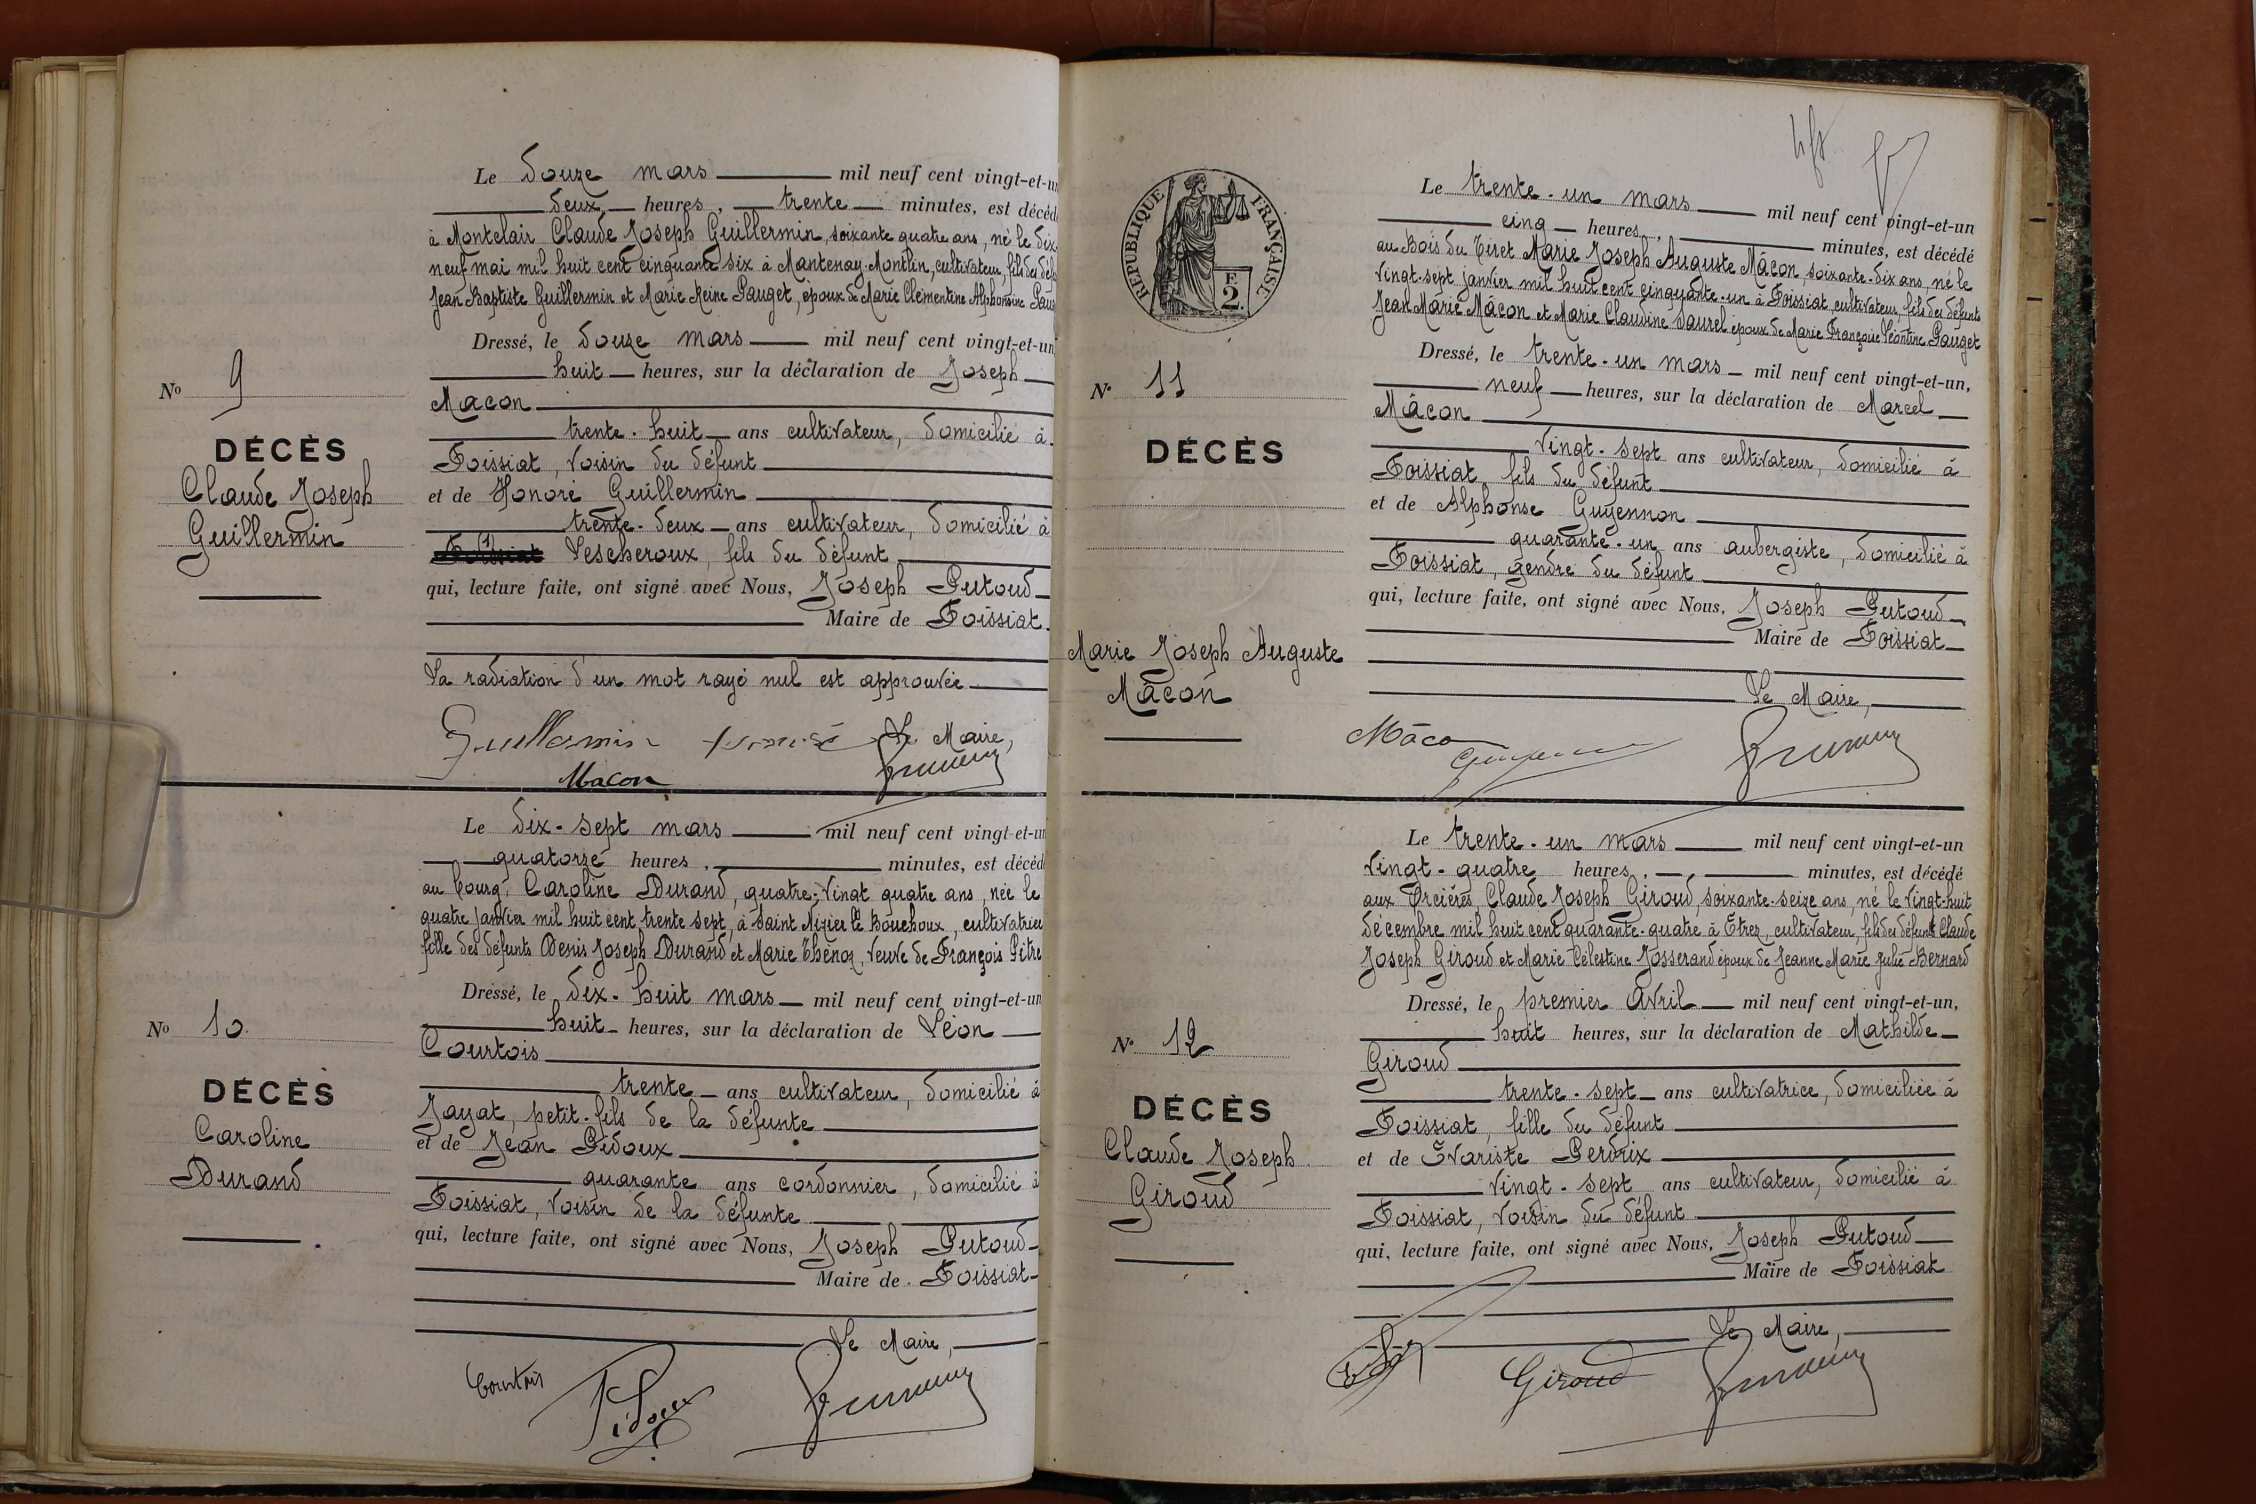 Le douze mars mil neuf cent vingt-et-un
deux heures, trente minutes, est décéd
à Montclair Claude Joseph Guillermin, soixante quatre ans, né le dix
neuf mai mil huit cent cinquante six à Mantenay-Montlin, cultivateur, fils des déf
Jean Baptiste Guillermin et Marie Reine Pauget, époux de Marie Clémentine Alphonsine Paug
Dressé, le douze mars mil neuf cent vingt-et-un
huit heures, sur la déclaration de Joseph
Macon
trente-huit ans cultivateur, domicilié à
Foissiat, voisin du défunt
et de Honoré Guillermin
trente-deux ans cultivateur, domicilié à
Foissiat Lescheroux, fils du défunt
qui, lecture faite, ont signé avec Nous, Joseph Putoud
Maire de Foissiat.
La radiation d'un mot rayé nul est approuvée
Le Maire,
Guillermin honoré
Macon
No 9
DÉCÈS
Claude Joseph
Guillermin
Le dix-sept mars mil neuf cent vingt-et-un
quatorze heures, minutes, est décéd
au bourg, Caroline Durand, quatre-vingt quatre ans, née le
quatre janvier mil huit cent trente sept, à Saint Nizier le Bouchoux, cultivatrice
fille des défunts Denis Joseph Durand et Marie Thénoz, veuve de François Pitre
Dressé, le dix-huit mars mil neuf cent vingt-et-un
huit heures, sur la déclaration de Léon
Courtois
trente ans cultivateur, domicilié à
Jayat, petit-fils de la défunte
et de Jean Pidoux
quarante ans cordonnier, domicilié à
Foissiat, voisin de la défunte
qui, lecture faite, ont signé avec Nous, Joseph Putoud
Maire de Foissiat
Le Maire,
Courtois Pidoux
No 10
DÉCÈS
Caroline
Durand
RÉPUBLIQUE FRANÇAISE
F.
2.
Le trente-un mars mil neuf cent vingt-et-un
cinq heures, minutes, est décédé
au Bois du Tiret Marie Joseph Auguste Mâcon, soixante-dix ans, né le
vingt-sept janvier mil huit cent cinquante-un à Foissiat, cultivateur, fils des défunts
Jean Marie Mâcon et Marie Claudine Saurel époux de Marie Françoise Léontine Pauget
Dressé, le trente-un mars mil neuf cent vingt-et-un,
neuf heures, sur la déclaration de Marcel
Mâcon
vingt-sept ans cultivateur, domicilié à
Foissiat, fils du défunt
et de Alphonse Guyennon
quarante-un ans aubergiste, domicilié à
Foissiat, gendre du défunt
qui, lecture faite, ont signé avec Nous, Joseph Putoud
Maire de Foissiat
Le Maire,
Mâcon
No 11
DÉCÈS
Marie Joseph Auguste
Mâcon
Le trente-un mars mil neuf cent vingt-et-un
vingt-quatre heures, minutes, est décédé
aux Orcières, Claude Joseph Giroud, soixante-seize ans, né le vingt-huit
décembre mil huit cent quarante-quatre à Étrez, cultivateur, fils des défunts Claude
Joseph Giroud et Marie Célestine Josserand époux de Jeanne Marie Julie Bernard
Dressé, le premier avril mil neuf cent vingt-et-un,
huit heures, sur la déclaration de Mathilde
Giroud
trente-sept ans cultivatrice, domiciliée à
Foissiat, fille du défunt
et de Évariste Perdrix
vingt-sept ans cultivateur, domicilié à
Foissiat, voisin du défunt
qui, lecture faite, ont signé avec Nous, Joseph Putoud
Maire de Foissiat
Le Maire,
Giroud
No 12
DÉCÈS
Claude Joseph
Giroud